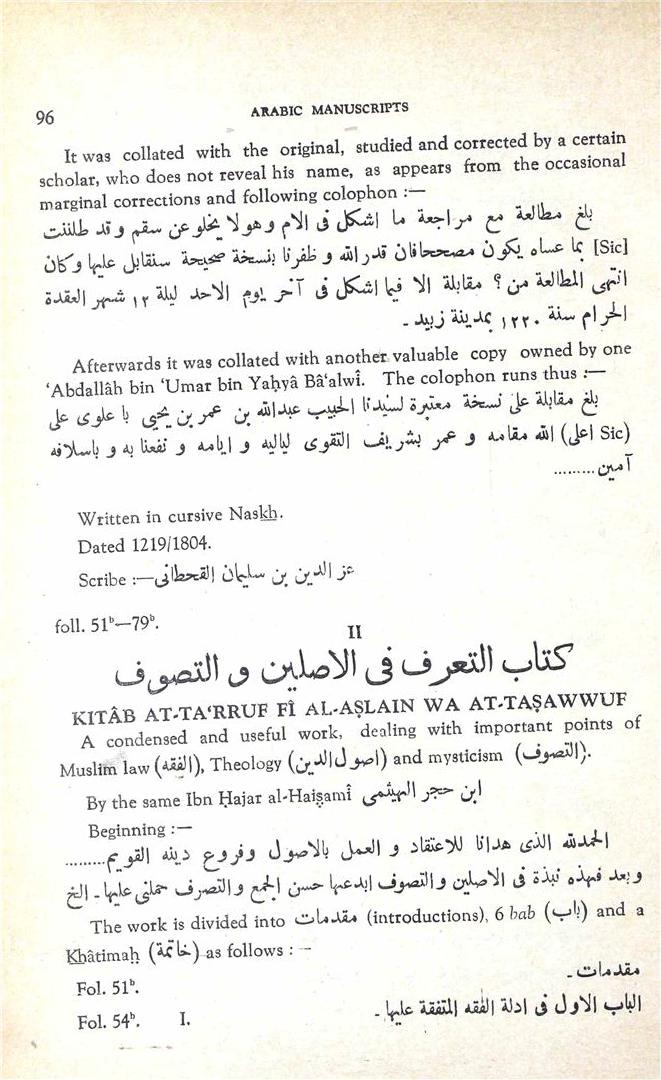 96
ARABIC MANUSCRIPTS
It was collated with the original, studied and corrected by a certain
scholar, who does not reveal his name, as appears from the occasional
marginal corrections and following colophon :—
بلغ مطالعة مع مراجعة ما اشكل فى الام وهو لا يخلو عن سقم و قد ظننت
[Sic] بما عساه يكون مصححافان قدر الله و ظفرنا بنسخة صحيحة سنقابل عليها وكان
انتهى المطالعة من ؟ مقابلة الا فيما اشكل فى آخر يوم الاحد ليلة ١٢ شهر العقدة
الحرام سنة ١٢٢٠ بمدينة زبيد ـ
Afterwards it was collated with another valuable copy owned by one
‘Abdallâh bin ‘Umar bin Yaḥyâ Bâ‘alwî. The colophon runs thus :—
بلغ مقابلة على نسخة معتبرة لسيدنا الحبيب عبدالله بن عمر بن يحيى با علوى على
(Sic اعلى) الله مقامه و عمر بشريف التقوى لياليه و ايامه و نفعنا به و باسلافه
آمين.........
Written in cursive Naskh.
Dated 1219/1804.
Scribe :—عز الدين بن سليمان القحطانى
foll. 51ᵇ—79ᵇ.
II
كتاب التعرف فى الاصلين و التصوف
KITÂB AT-TA‘RRUF FÎ AL-AṢLAIN WA AT-TAṢAWWUF
A condensed and useful work, dealing with important points of
Muslim law (الفقه), Theology (اصول الدين) and mysticism (التصوف).
By the same Ibn Ḥajar al-Haiṣamî ابن حجر الهيثمى
Beginning :—
الحمدلله الذى هدانا للاعتقاد و العمل بالاصول وفروع دينه القويم.........
و بعد فهذه نبذة فى الاصلين و التصوف ابدعها حسن الجمع و التصرف حملنى عليها ـ الخ
The work is divided into مقدمات (introductions), 6 bab (باب) and a
Khâtimaḥ (خاتمة) as follows : —
Fol. 51ᵇ. مقدمات ـ
Fol. 54ᵇ. I. الباب الاول فى ادلة الفقه المتفقة عليها ـ